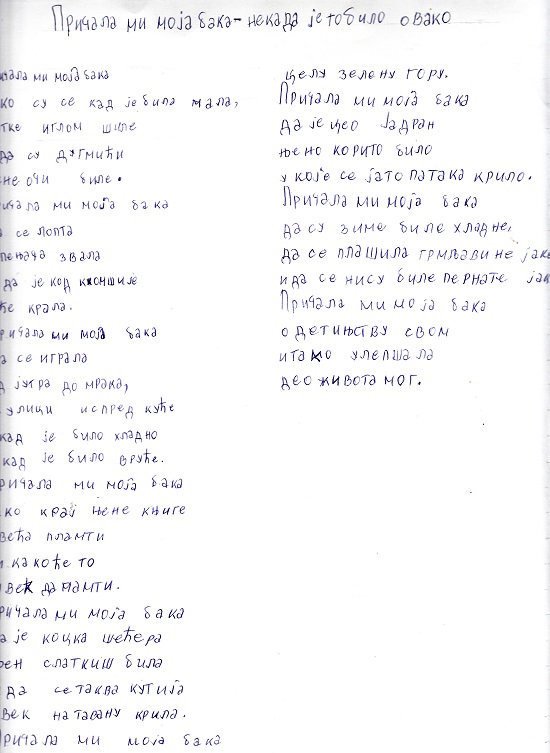 Причала ми моја бака - некада је то било овако
ичала ми моја бака
ко су се кад је била мала,
тке иглом шиле
да су дугмићи
не очи биле.
ичала ми моја бака
а се лопта
пењача звала
да је код комшије
ће крала.
ричала ми моја бака
а се играла
д јутра до мрака,
улици испред куће
кад је било хладно
кад је било вруће.
ричала ми моја бака
ко крај њене књиге
већа пламти
и како ће то
век да памти.
ричала ми моја бака
а је коцка шећера
ен слаткиш била
да се таква кутија
век на тавану крила.
ричала ми моја бака
целу зелену гору.
Причала ми моја бака
да је цео Јадран
њено корито било
у које се јато патака крило.
Причала ми моја бака
да су зиме биле хладне,
да се плашила грмљавине јаке
и да се нису биле пернате јак
Причала ми моја бака
о детињству свом
и тако улепшала
део живота мог.